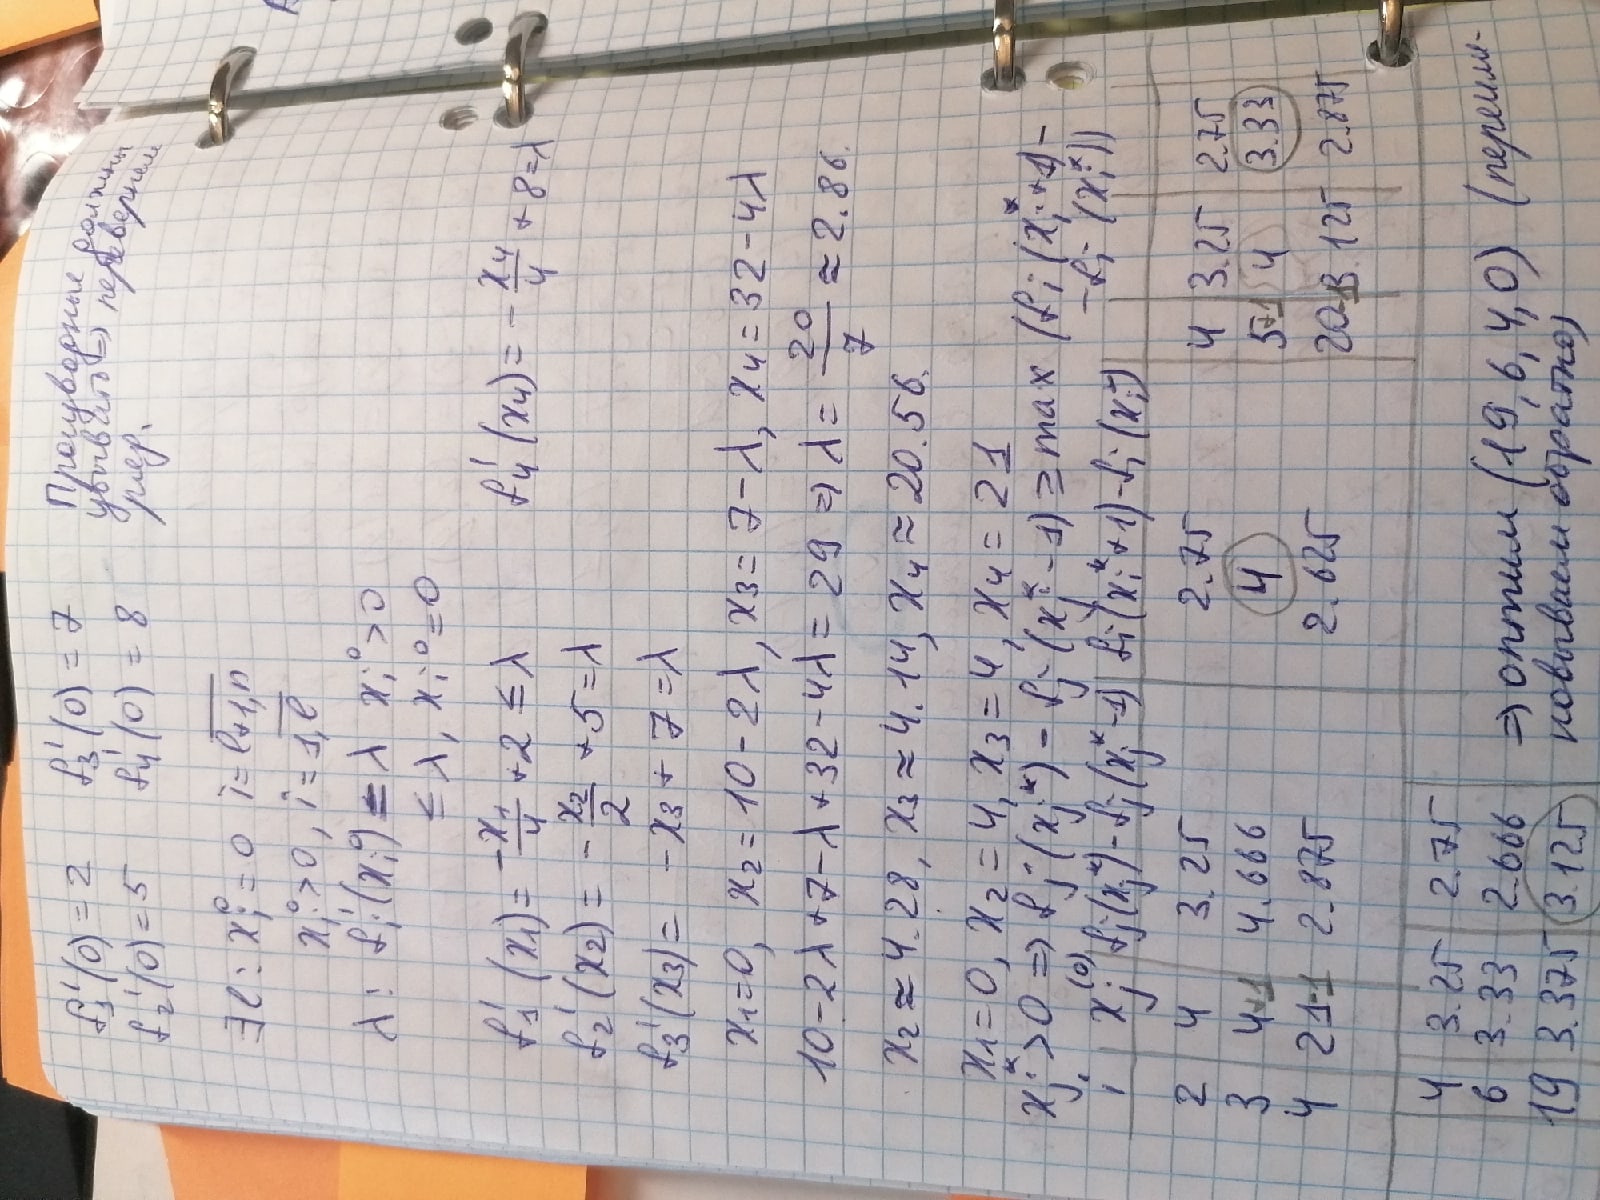 f₁'(0) = 2 f₃'(0) = 7 Производные должны
f₂'(0) = 5 f₄'(0) = 8 убывать => перевернём
∃l: xᵢ⁰ = 0 i = l+1,n
xᵢ⁰ > 0, i = 1,l
λ: fᵢ'(xᵢ⁰) = λ xᵢ⁰ > 0
≤ λ, xᵢ⁰ = 0
f₁'(x₁) = -x₁/4 + 2 ≤ λ f₄'(x₄) = -x₄/4 + 8 = λ
f₂'(x₂) = -x₂/2 + 5 = λ
f₃'(x₃) = -x₃ + 7 = λ
x₁ = 0, x₂ = 10 - 2λ, x₃ = 7 - λ, x₄ = 32 - 4λ
10 - 2λ + 7 - λ + 32 - 4λ = 29 => λ = 20/7 ≈ 2.86.
x₂ ≈ 4.28, x₃ ≈ 4.14, x₄ ≈ 20.56.
x₁ = 0, x₂ = 4, x₃ = 4, x₄ = 21
xⱼ* > 0 => fⱼ(xⱼ*) - fⱼ(xⱼ* - 1) ≥ max (fᵢ(xᵢ* + 1) -
- fᵢ(xᵢ*))
i xⱼ⁽⁰⁾ fⱼ(xⱼ*) - fⱼ(xⱼ* - 1) fᵢ(xᵢ* + 1) - fᵢ(xᵢ*)
2 4 3.25 2.75 4 3.25 2.75
3 4+1 4.666 4 5+1 4 3.33
4 21-1 2.875 2.625 20-1 3.125 2.875
4 3.25 2.75
6 3.33 2.666 => оптим (19, 6, 4, 0) (переим-
19 3.375 3.125 новываем обратно)